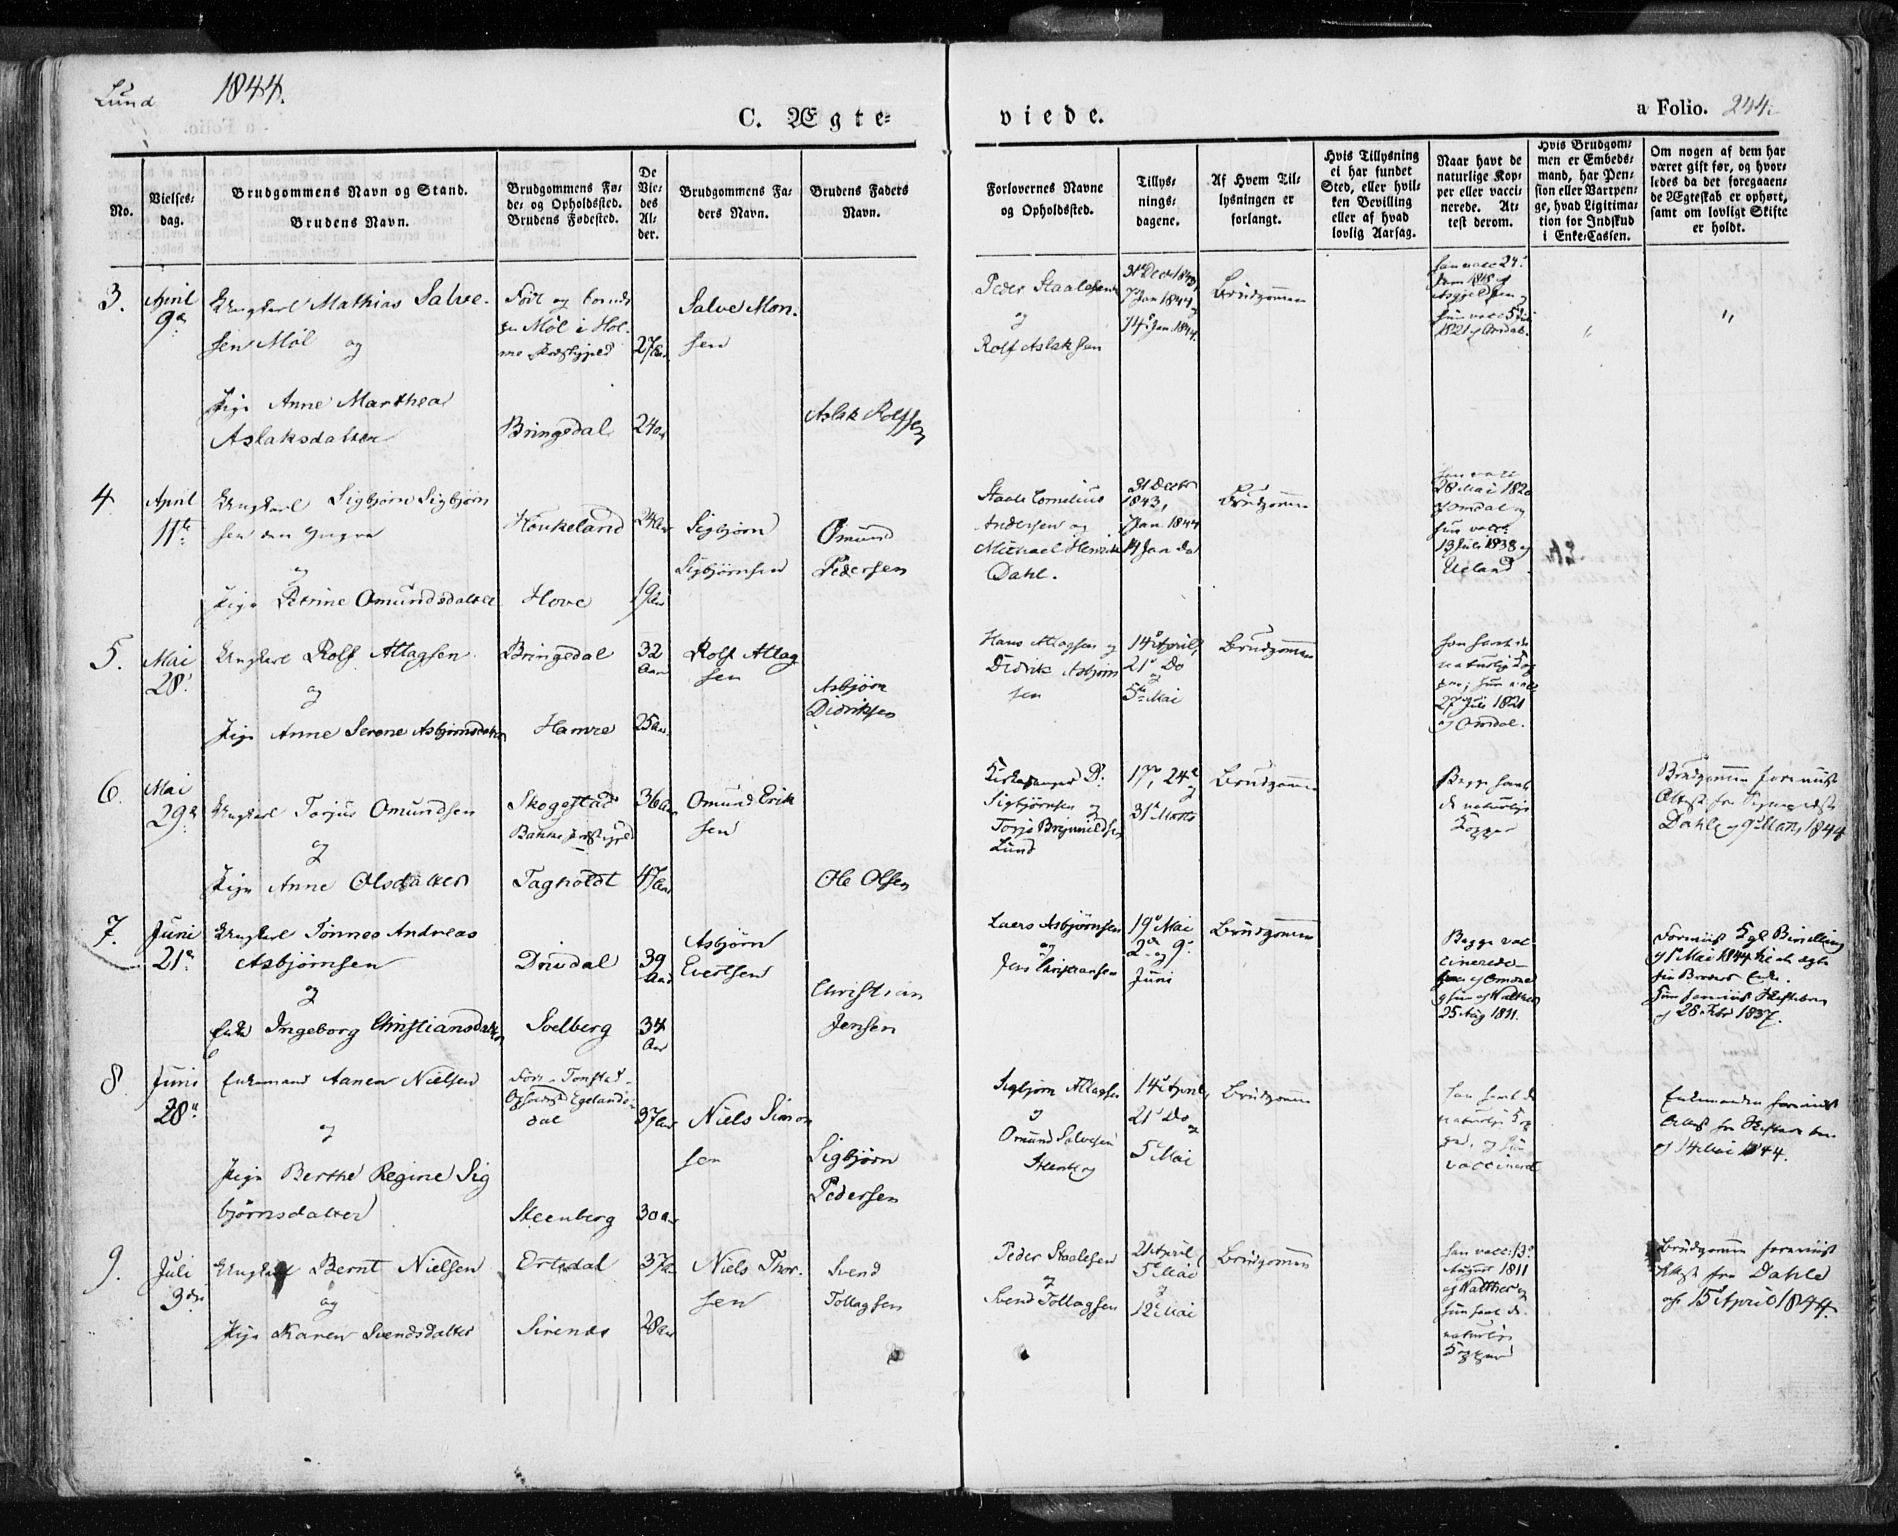 Lund 1844.
C. Ægte-
viede.
a Folio. 244.
No.
Vielses-
dag.
Brudgommens Navn og Stand.
Brudens Navn.
Brudgommens Fø-
de- og Opholdsted.
Brudens Fødested.
De
Vie-
des
Al-
der.
Brudgommens Fa-
ders Navn.
Brudens Faders
Navn.
Forlovernes Navne
og Opholdsted.
Tillys-
nings-
dagene.
Af Hvem Til-
lysningen er
forlangt.
Hvis Tillysning
ei har fundet
Sted, eller hvil-
ken Bevilling
eller af hvad
lovlig Aarsag.
Naar havt de
naturlige Kop-
per eller vacci-
nerede. At-
test derom.
Hvis Brudgom-
men er Embeds-
mand, har Pen-
sion eller Vartpen-
ge, hvad Ligitima-
tion for Indskud
i Enke-Cassen.
Om nogen af dem har
været gift før, og hvor-
ledes da det foregaaen-
de Ægteskab er ophørt,
samt om lovligt Skifte
er holdt.
3.
April
9de
Ungkarl Mathias Salve-
sen Møl og
Pige Anne Marthea
Aslaksdatter
Møl i Hol-
me Præstegjeld
Bringedal
27 Aar
24 Aar
Salve Mon-
sen
Aslak Rolfsen
Peder Staalesen
og
Rolf Aslaksen
31 Decbr 1843,
7 Jan 1844
og
14 Jan 1844.
Brudgommen
"
"
4
April
11te
Ungkarl Sigbjørn Sigbjørn
sen den yngre
og
Pige Petrine Omundsdatter
Houkeland
Hove
24 Aar
19 Aar
Sigbjørn
Sigbjørnsen
Omund
Pedersen
Staale Cornelius
Andersen og
Michael Henrik
Dahl.
31 Decbr
1843,
7 Jan 1844
14 Jan do
Brudgommen
28 Mai 1820
af Omdal og
hun vacc.
13 Juli 1838 af
Ueland
5.
Mai
28'
Ungkarl Rolf Atlagsen
og
Pige Anne Serene Asbjørnsdatter
Bringedal
Hamre
32
Aar
25 Aar
Rolf Atlag
sen
Asbjørn
Didriksen
Hans Atlagsen og
Didrik Asbjørn
sen
14 April,
21 Do
og
5te Mai
Brudgommen
han havt de
naturlige Kop
per, hun vacc
27 Juli 1821
af Omdal.
6.
Mai
29de
Ungkarl Torjus Omundsen
og
Pige Anne Olsdatter
Skogestad
Bakke Præstegjeld
Tagholdt
36 Aar
47 Aar
Omund Erik
sen
Ole Olsen
Kirkesanger P.
Sigbjørnsen og
Torjo Brynnildsen
Lund
17de, 24de
og
31 Marts
Brudgommen
Begge havt
de naturlige
Kopper
Brudgommen foreviist
Attest fra
Dahl af 9 Marts 1844
7.
Juni
21de
Ungkarl Tønnes Andreas
Asbjørnsen
og
Enke Ingeborg Christiansdatter
Drivdal
Soelberg
39
Aar
34
Aar
Asbjørn
Evertsen
Christian
Jensen
Laers Asbjørnsen
og
Jens Christiansen
19 Mai
2de og 9de
Juni
Brudgommen
Begge vac-
cinerede
han af Omdal
og hun af Walther
25 Aug 1811.
Foreviist Kgl Bevilling
af 1 Mai 1844 til at ægte
sin Broders Enke.
Hun foreviist Skiftebrev
af 28 Febr 1837.
8
Juni
28de
Enkemand Aanen Nielsen
og
Pige Berthe Regine Sig
bjørnsdatter
Fød. Tonstad
Opholdst Egelands-
dal
Steenberg
37 Aar
30 Aar
Niels Simon
sen
Sigbjørn
Pedersen
Sigbjørn Atlagsen
og
Omund Salvesen
Steenberg
14 April,
21 Do
og
5 Mai
Brudgommen
han havt de
naturlige Kop
per, og hun
vaccineret
Enkemanden foreviist
Attest fra Skifteretten
af 14 Mai 1844.
9.
Juli
3die
Ungkarl Bernt Nielsen
og
Pige Karen Svendsdatter
Ørtsdal
Sirenes
37 Aar
28 Aar
Niels Thor-
sen
Svend
Tollagsen
Peder Staalesen
og
Svend Tollagsen
21 April,
5te Mai
og
12 Mai
Brudgommen
han vacc. 13
August 1811
af Walther og
hun havt de
naturlige
Kopper
Brudgommen foreviist
Attest fra Dahle
af 15 April 1844.